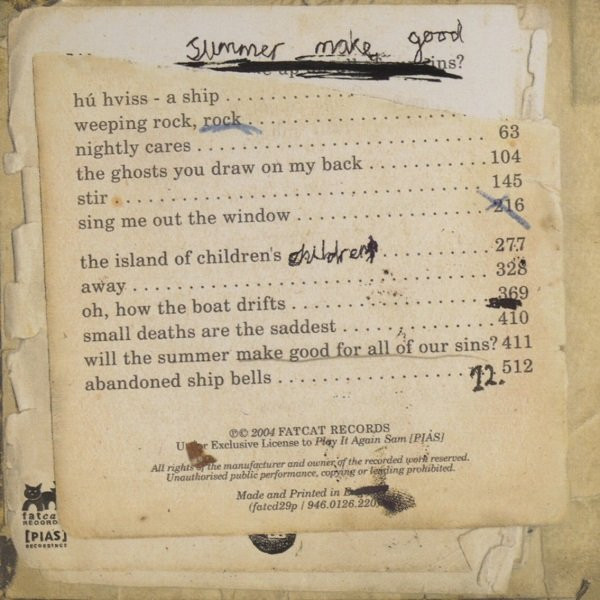 summer make good
ins?
hú hviss - a ship . . . . . . . . . . . . . . . . . . .
weeping rock, rock . . . . . . . . . . . . . . . . . .
nightly cares . . . . . . . . . . . . . . . . . . . . . . . 63
the ghosts you draw on my back . . . . . . . . . . 104
stir . . . . . . . . . . . . . . . . . . . . . . . . . . . . . . 145
sing me out the window . . . . . . . . . . . . . . . . 216
the island of children's children . . . . . . . . . . 277
away . . . . . . . . . . . . . . . . . . . . . . . . . . . . . 328
oh, how the boat drifts . . . . . . . . . . . . . . . . . 369
small deaths are the saddest . . . . . . . . . . . . . 410
will the summer make good for all of our sins? 411
abandoned ship bells . . . . . . . . . . . . . . . . . . 512
12.
℗© 2004 FATCAT RECORDS
Exclusive License to Play It Again Sam [PIAS]
All rights of the manufacturer and owner of the recorded work reserved.
Unauthorised public performance, copying or lending prohibited.
Made and Printed in
(fatcd29p | 946.0126.220
fatcat
RECORDS
[PIAS]
RECORDINGS